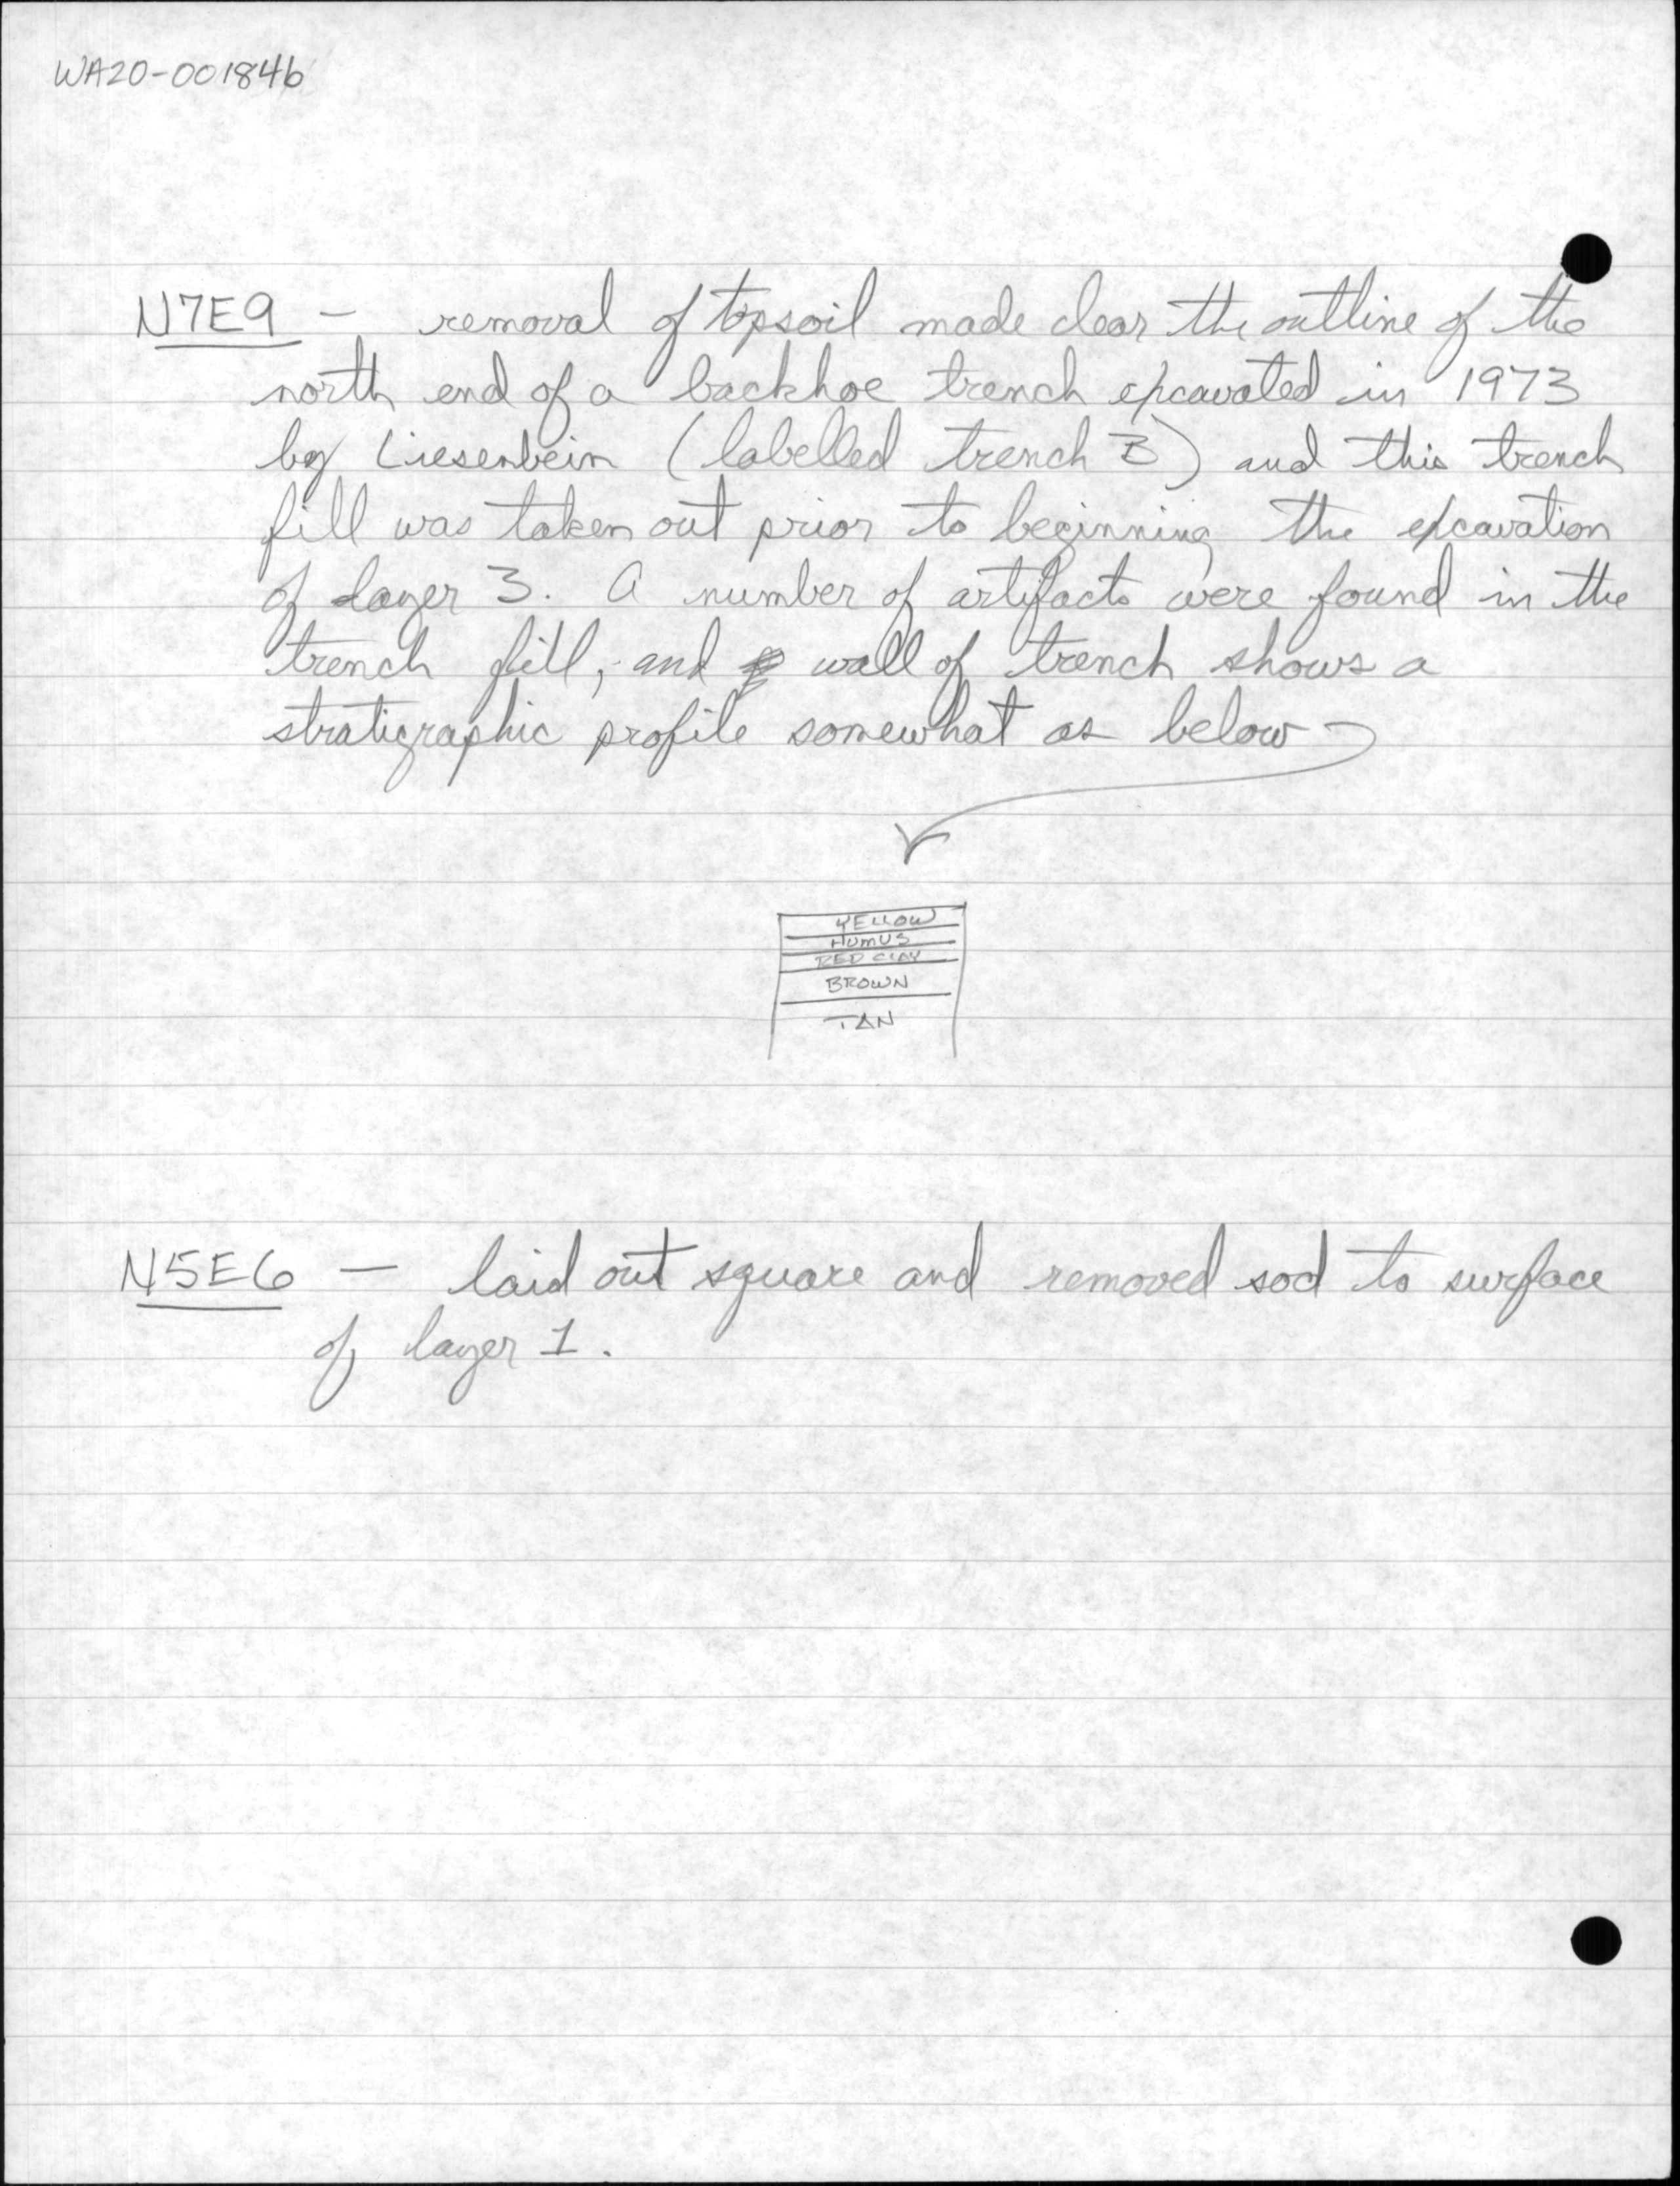 WA20-00184b
N7E9 - removal of topsoil made clear the outline of the
north end of a backhoe trench excavated in 1973
by Liesenbein (labelled trench B) and this trench
fill was taken out prior to beginning the excavation
of layer 3. A number of artifacts were found in the
trench fill, and wall of trench shows a
stratigraphic profile somewhat as below
YELLOW
HUMUS
RED CLAY
BROWN
TAN
N5E6 - laid out square and removed sod to surface
of layer 1.